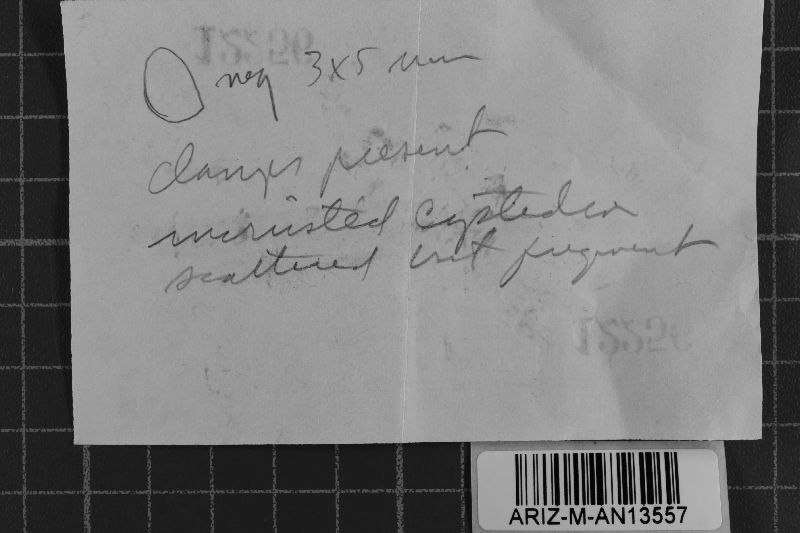 neg 3x5 mm
clamps present
incrusted cystidia
scattered but frequent
ARIZ-M-AN13557